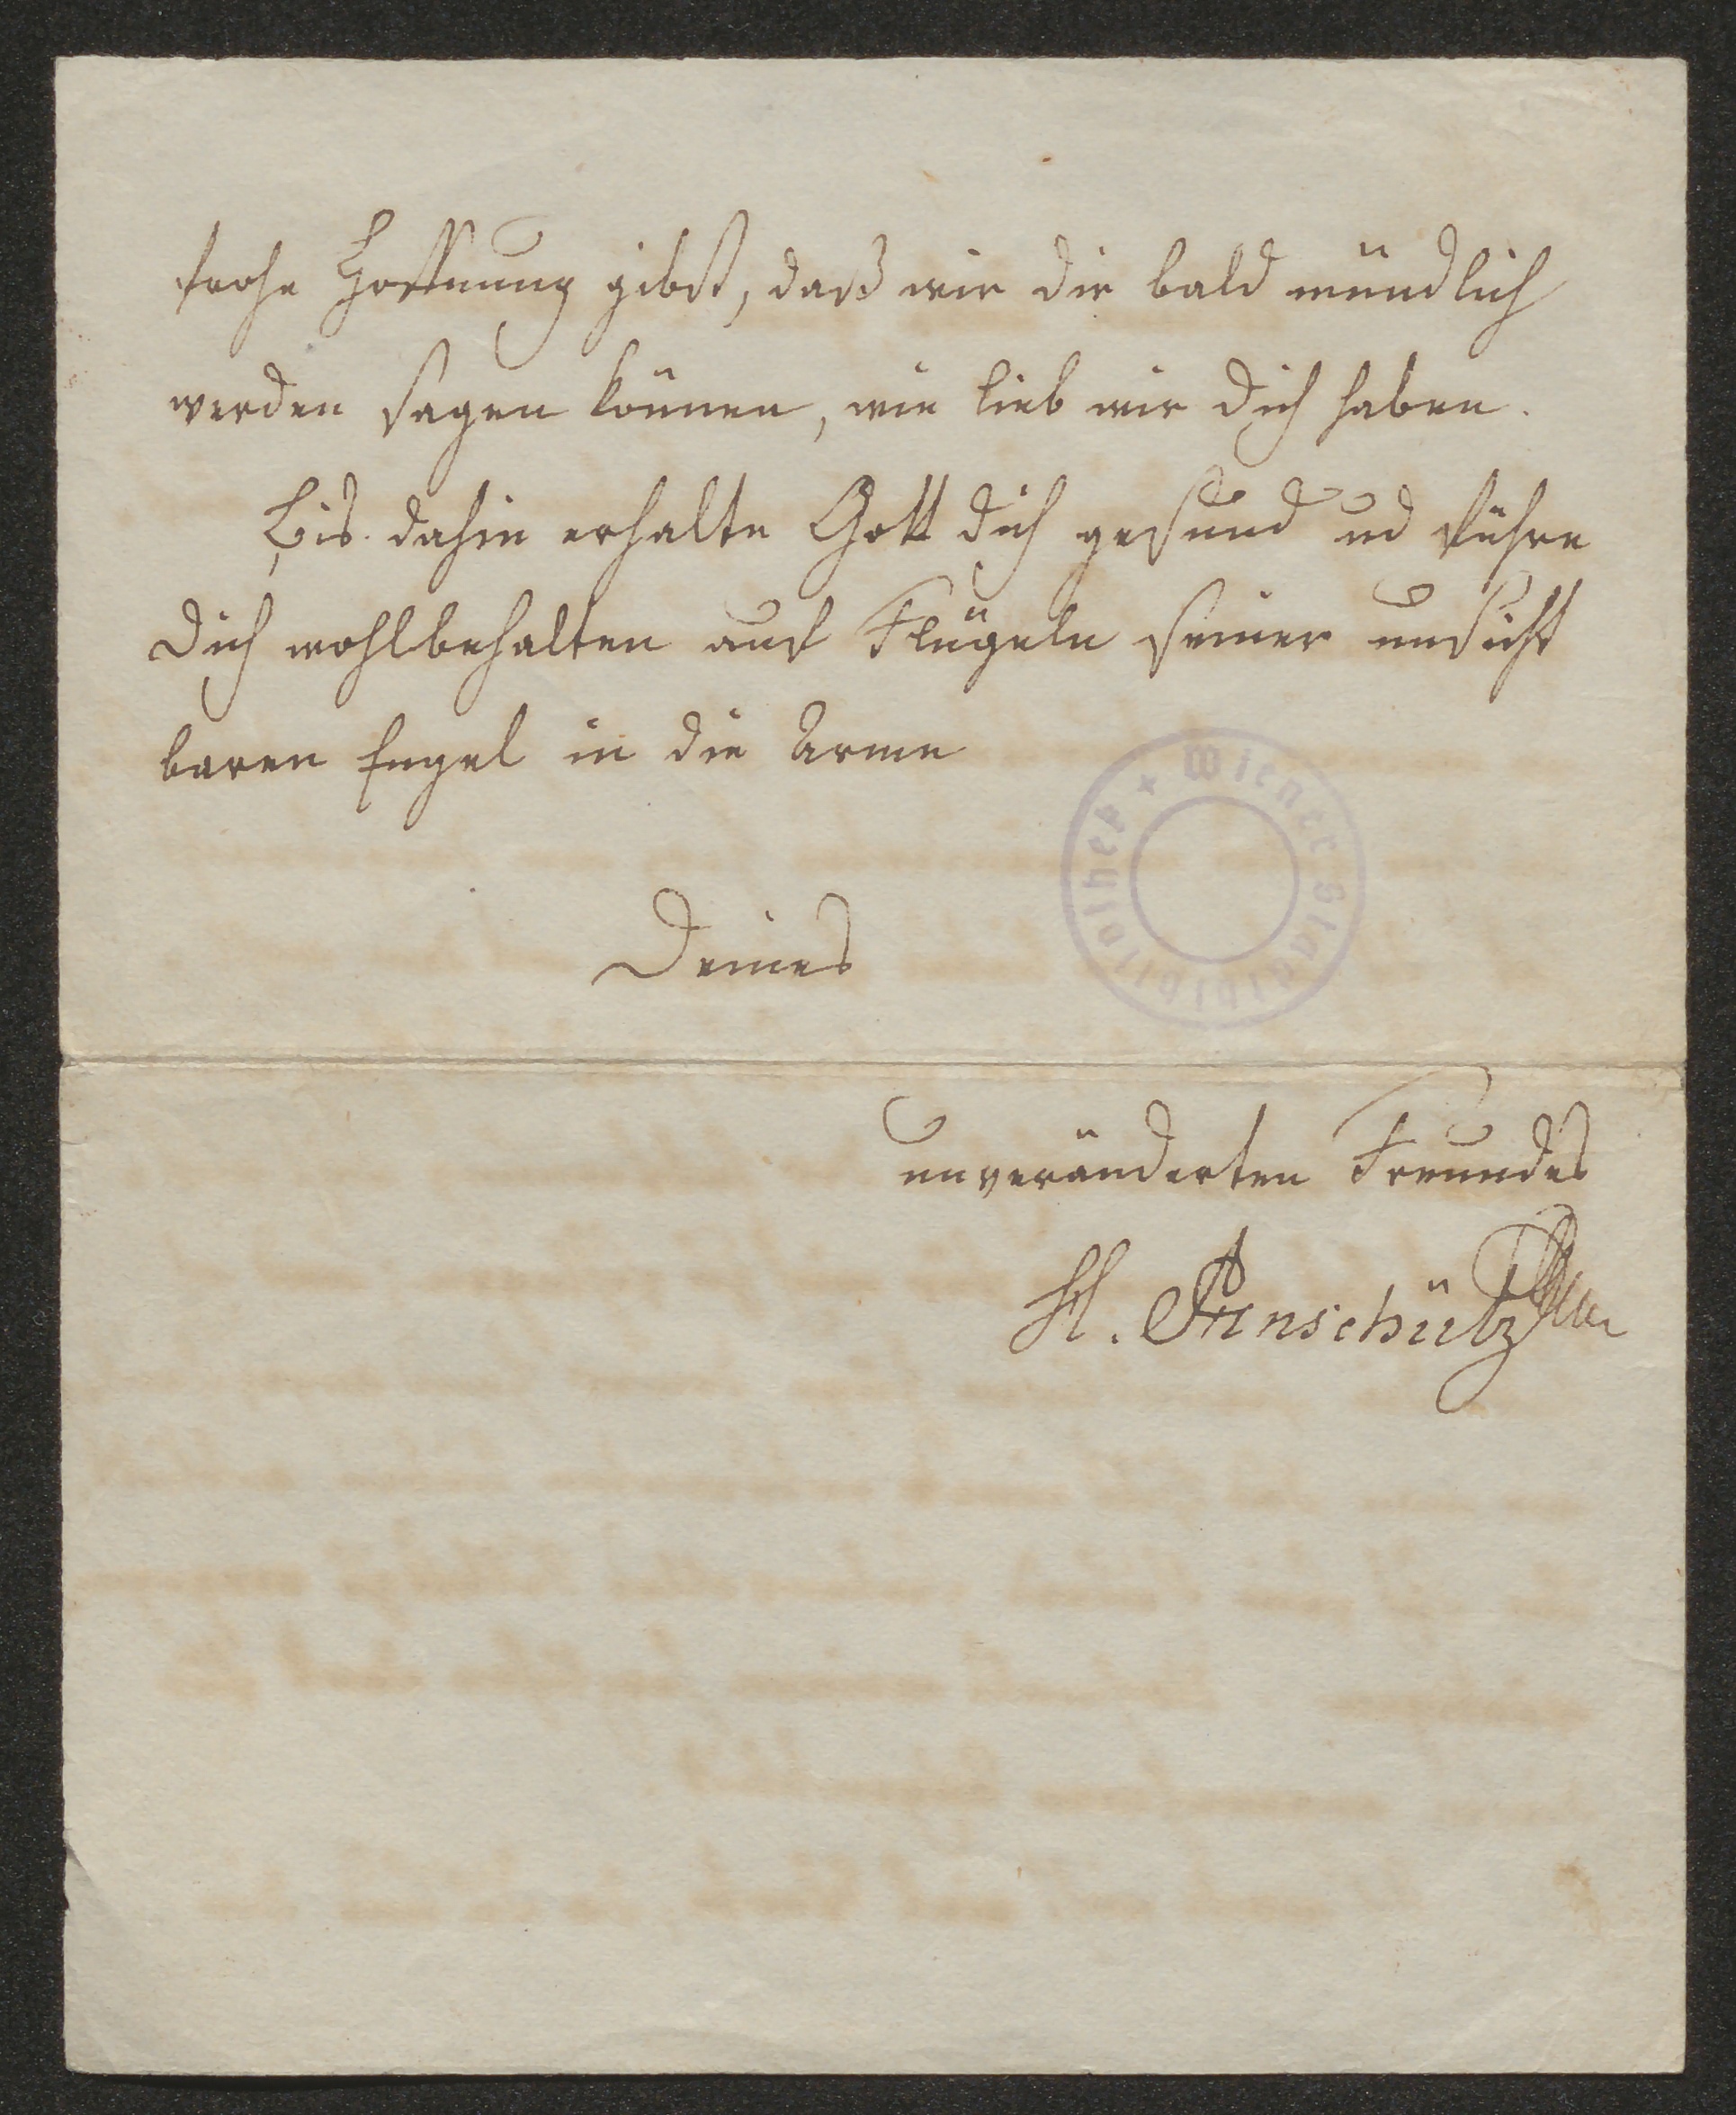 frohe Hoffnung gibst, daß wir dir bald mündlich
werden sagen können, wie lieb wir dich haben.
Bis dahin erhalte Gott dich gesund und führe
dich wohlbehalten auf Flügeln seiner unsicht
baren Engel in die Arme
Wiener Stadtbibliothek
Deines
unveränderten Freundes
H. Anschütz